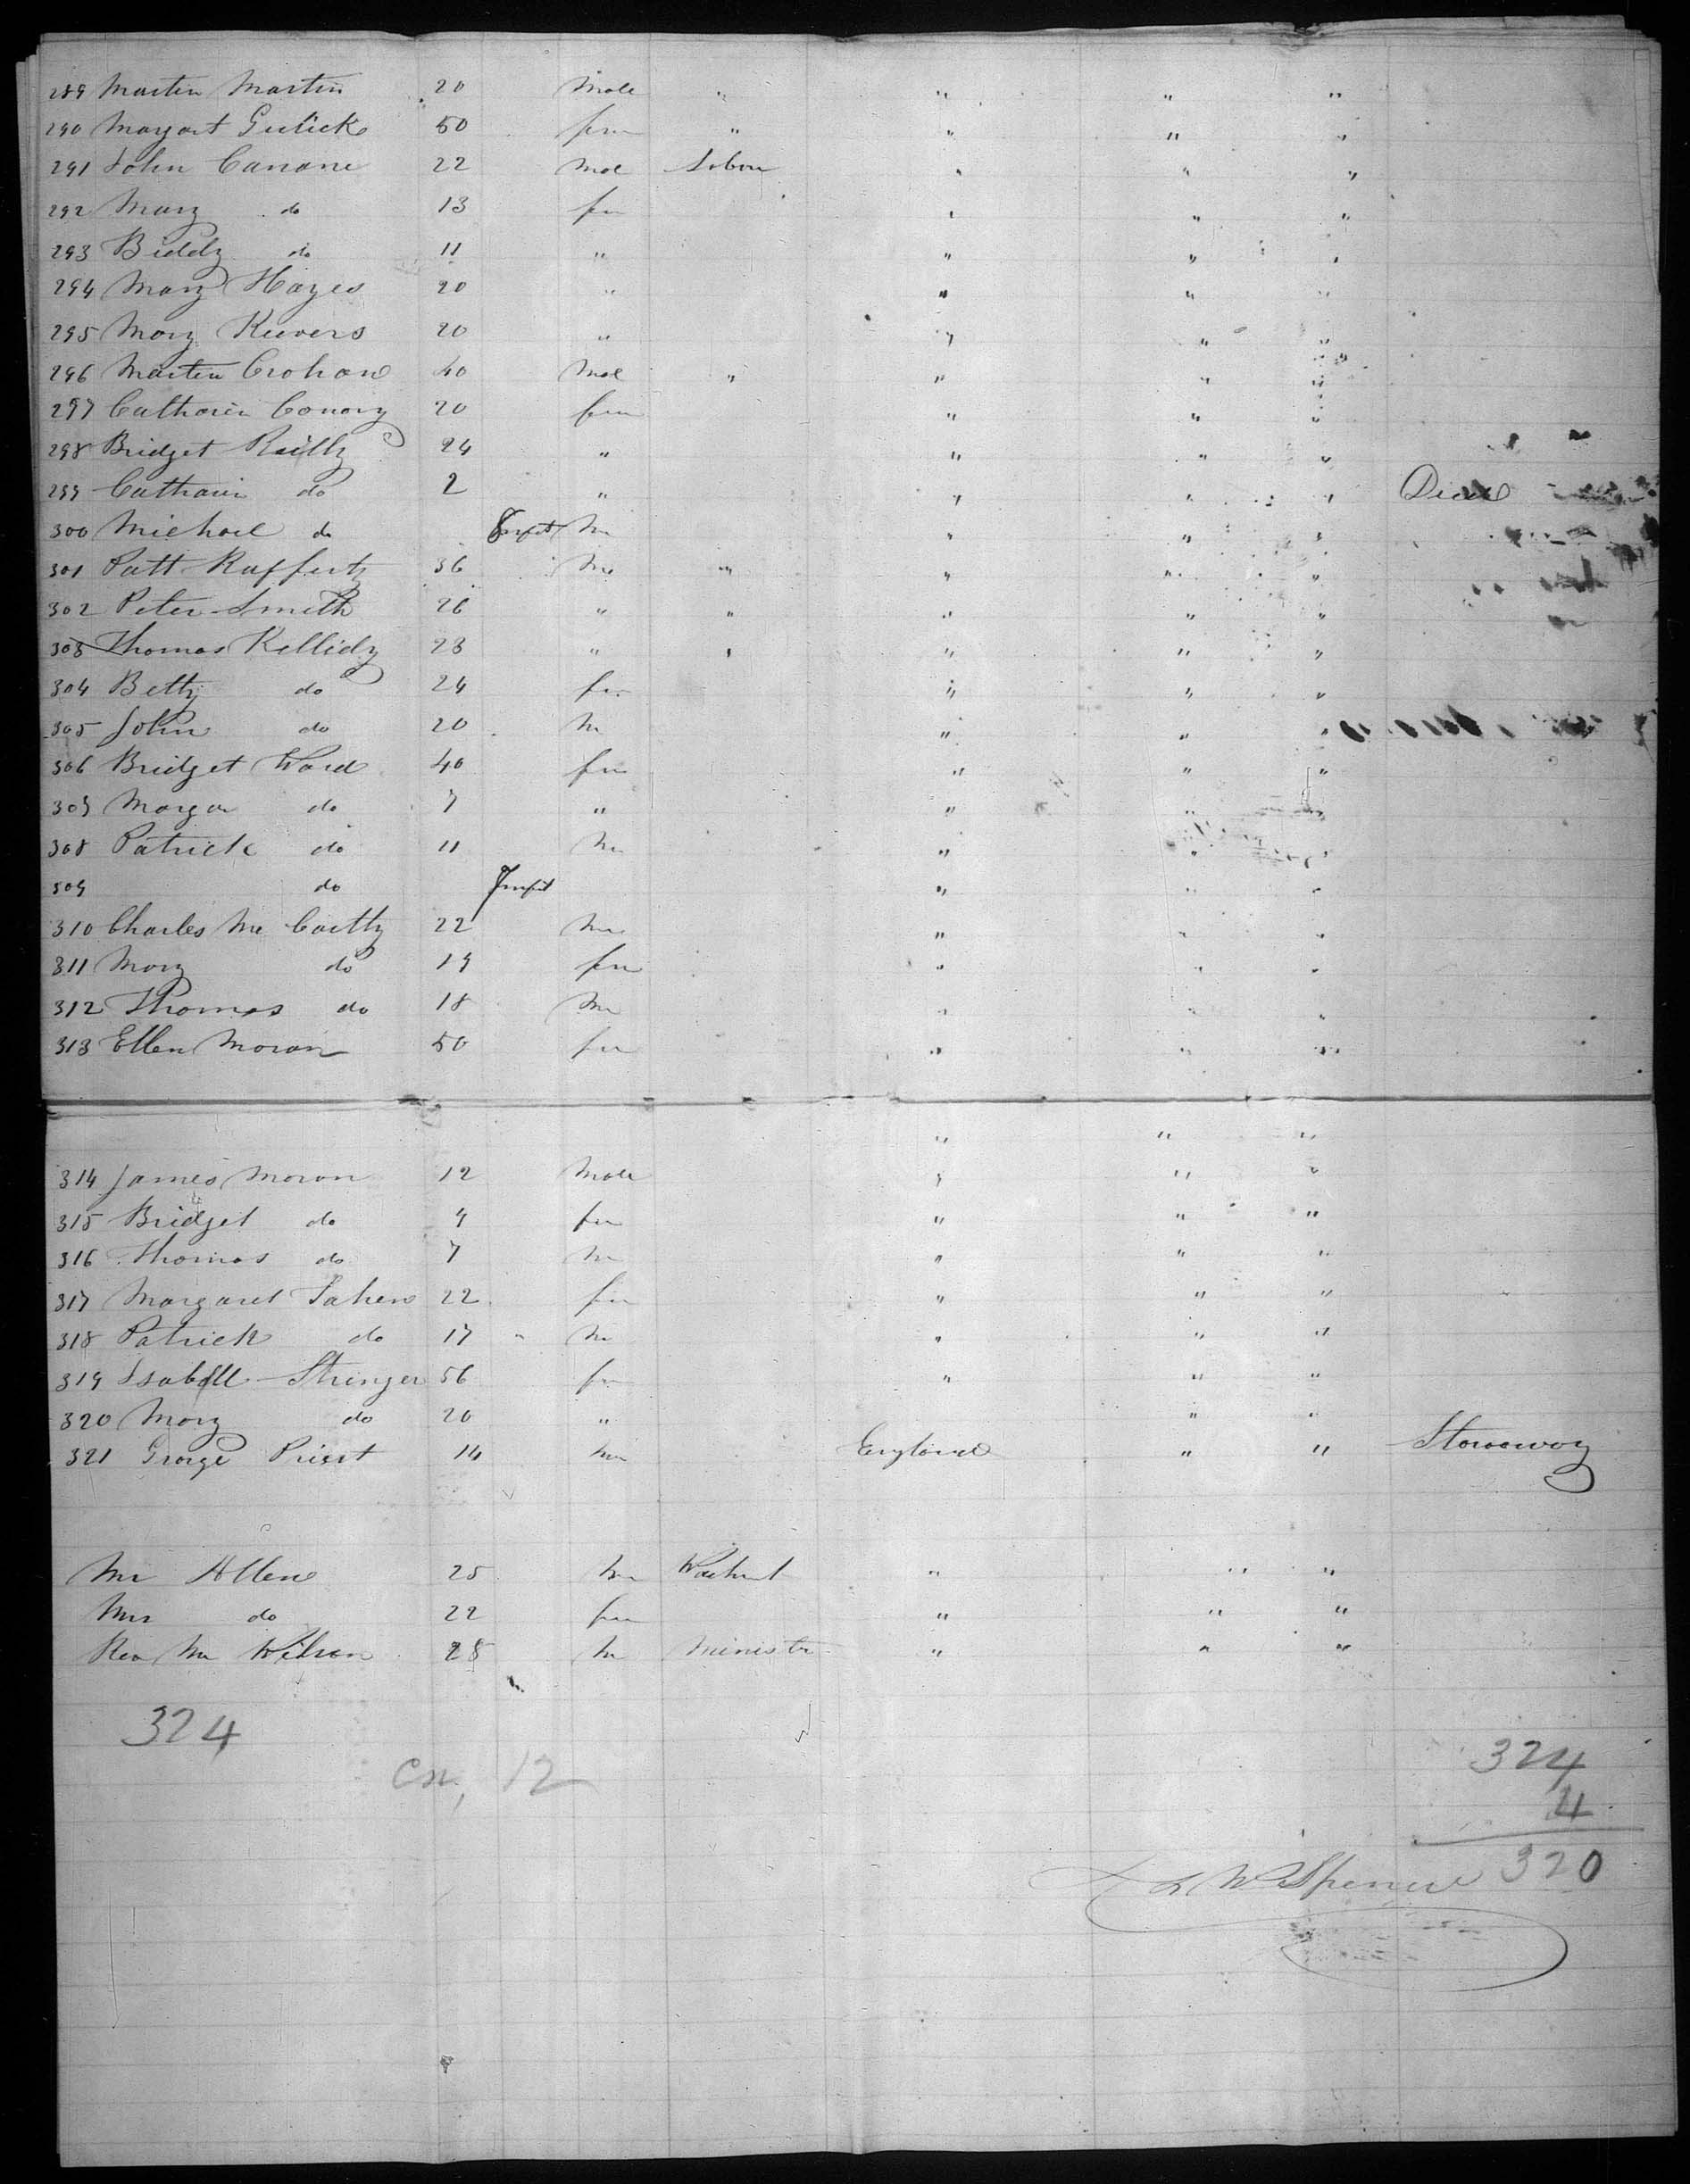 289 Martin Martin 20 Male " " " "
290 Margart Gulick 50 fem " " " "
291 John Canane 22 Mal Labor " " "
292 Mary do 13 fm " " "
293 Biddy do 11 " " " "
294 Mary Hayes 20 " " " "
295 Mary Keevers 20 " " " "
296 Martin Crohan 40 Mal " " " "
297 Catharin Conory 20 fem " " "
298 Bridget Reilly 24 " " " "
299 Catharin do 2 " " " " Died
300 Michael do Infant M " " "
301 Patt Rafferty 36 M " " " "
302 Peter Smith 26 " " " " "
303 Thomas Kellidy 23 " " " " "
304 Betty do 24 fm " " "
305 John do 20 M " " "
306 Bridget Ward 40 fm " " "
307 Margar do 7 " " " "
308 Patrick do 11 M " " "
309 do Infant " " "
310 Charles Mc Cartty 22 M " " "
311 Mary do 19 fm " " "
312 Thomas do 18 M " " "
313 Ellen Moran 50 fm " " "
" " "
314 James Moran 12 Male " " "
315 Bridget do 9 fm " " "
316 Thomas do 7 M " " "
317 Margaret Fahen 22 fm " " "
318 Patrick do 17 " M " " "
319 Isabell Stringer 56 fm " " "
320 Mary do 20 " " "
321 George Priest 14 M England " " Stowaway
Mr Allen 25 M " " "
Mrs do 22 fm " " "
Rev Mr Wilson 28 M Ministr " " "
324
Cn, 12
324
4
320
W Spencer